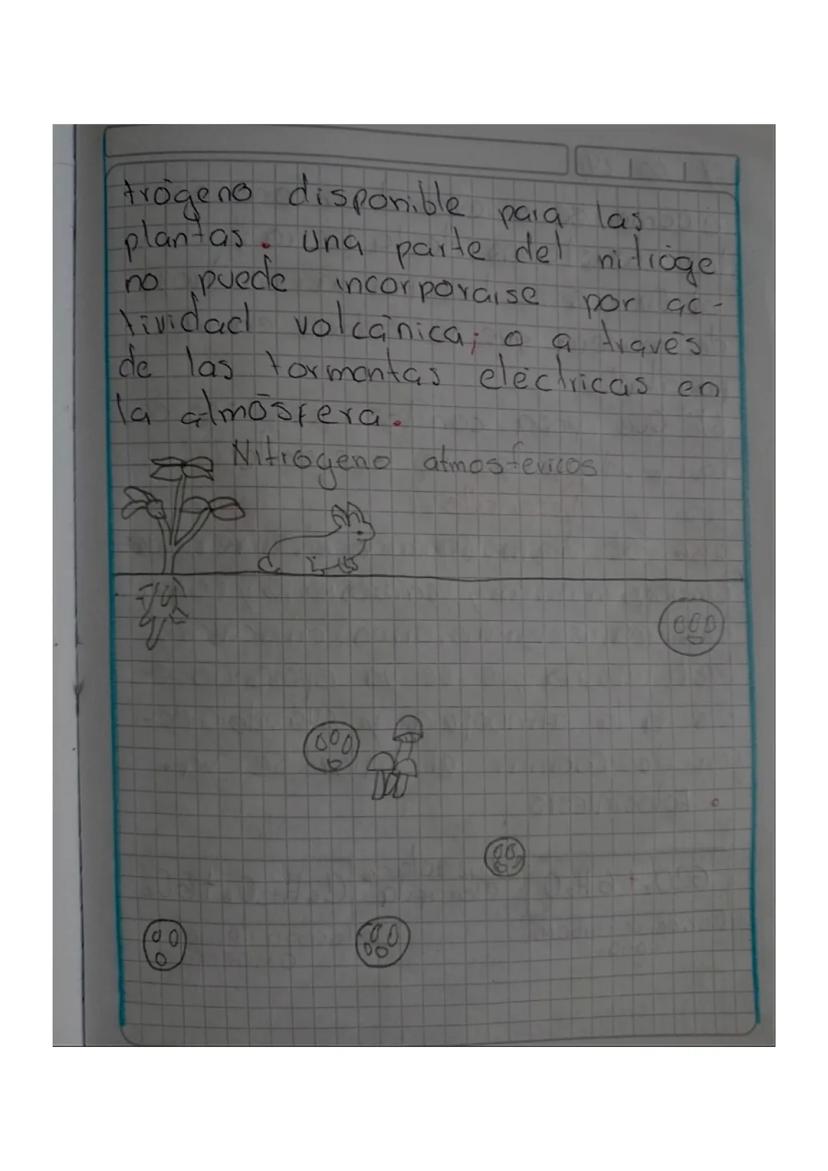 trógeno disponible para las
plantas. Una parte del nitróge
no puede incorporarse por ac-
tividad volcánica; o a través
de las tormentas eléctricas en
la atmósfera.
Nitrógeno atmosfericos